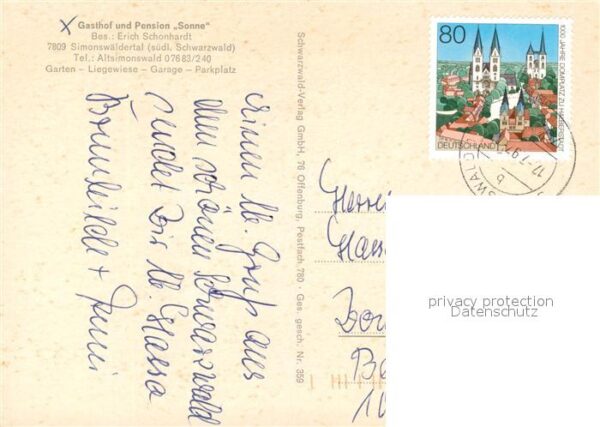 Gasthof und Pension „Sonne"
Bes.: Erich Schonhardt
7809 Simonswäldertal (südl. Schwarzwald)
Tel.: Altsimonswald 07683/240
Garten – Liegewiese – Garage – Parkplatz
einen lb. Gruß aus
dem schönen Schwarzwald
sendet Dir lb. Hassa
Brunhilde +
Schwarzwald-Verlag GmbH, 76 Offenburg, Postfach 780 · Ges. gesch. Nr. 359
80
1000 JAHRE DOMPLATZ ZU HALBERSTADT
DEUTSCHLAND
b
Herrn
Hass
privacy protection
Datenschutz